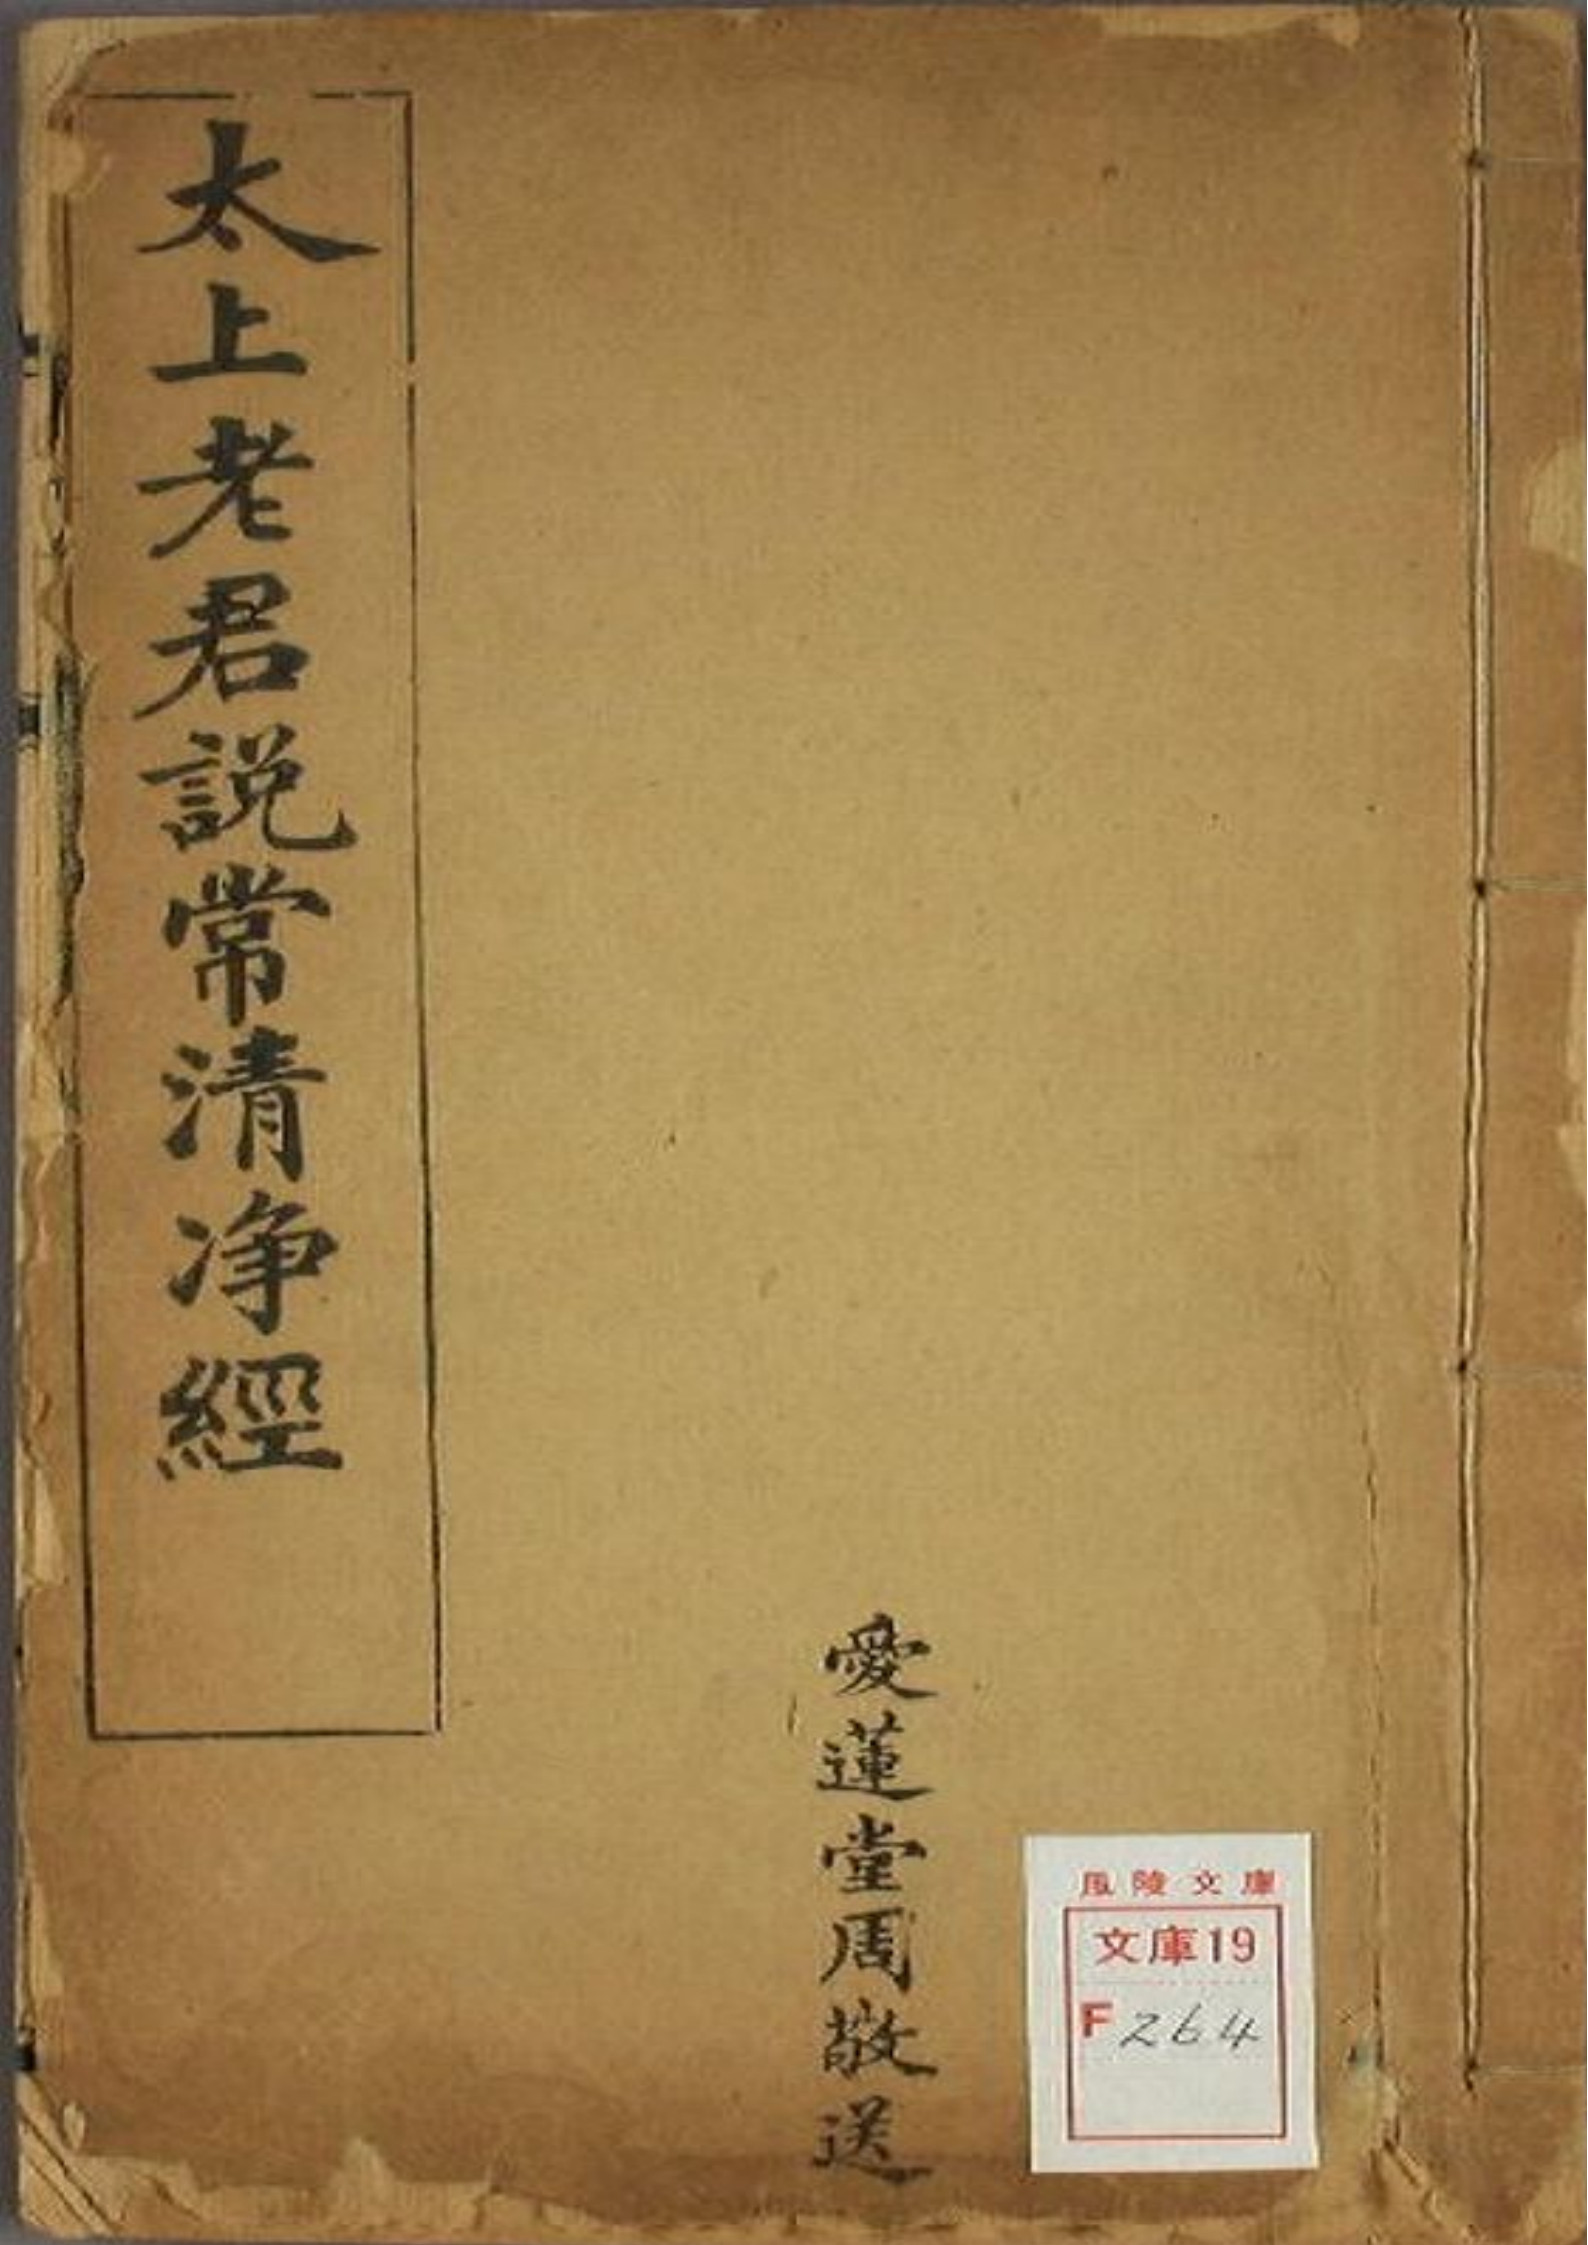 太上老君説常清净經
愛蓮堂周敬送
風陵文庫
文庫19
F 264